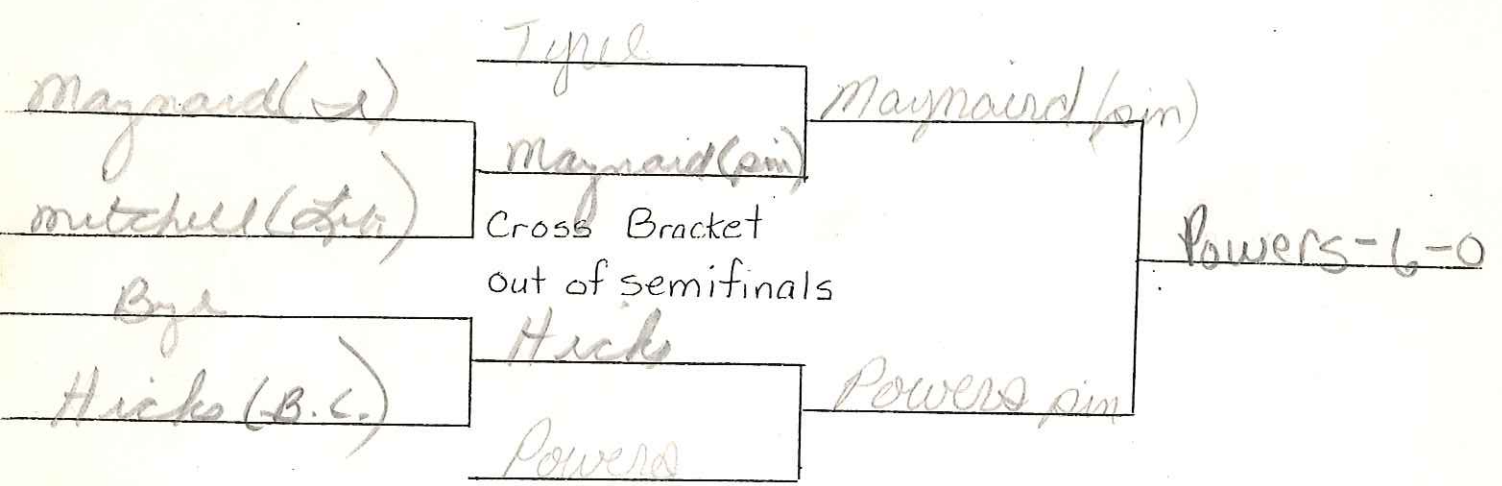 Maynard(
Mitchell(
Bye
Hicks (B.C.)
Maynard(pin)
Cross Bracket
out of semifinals
Hicks
Powers
Maynaird (pin)
Powers pin
Powers-6-0